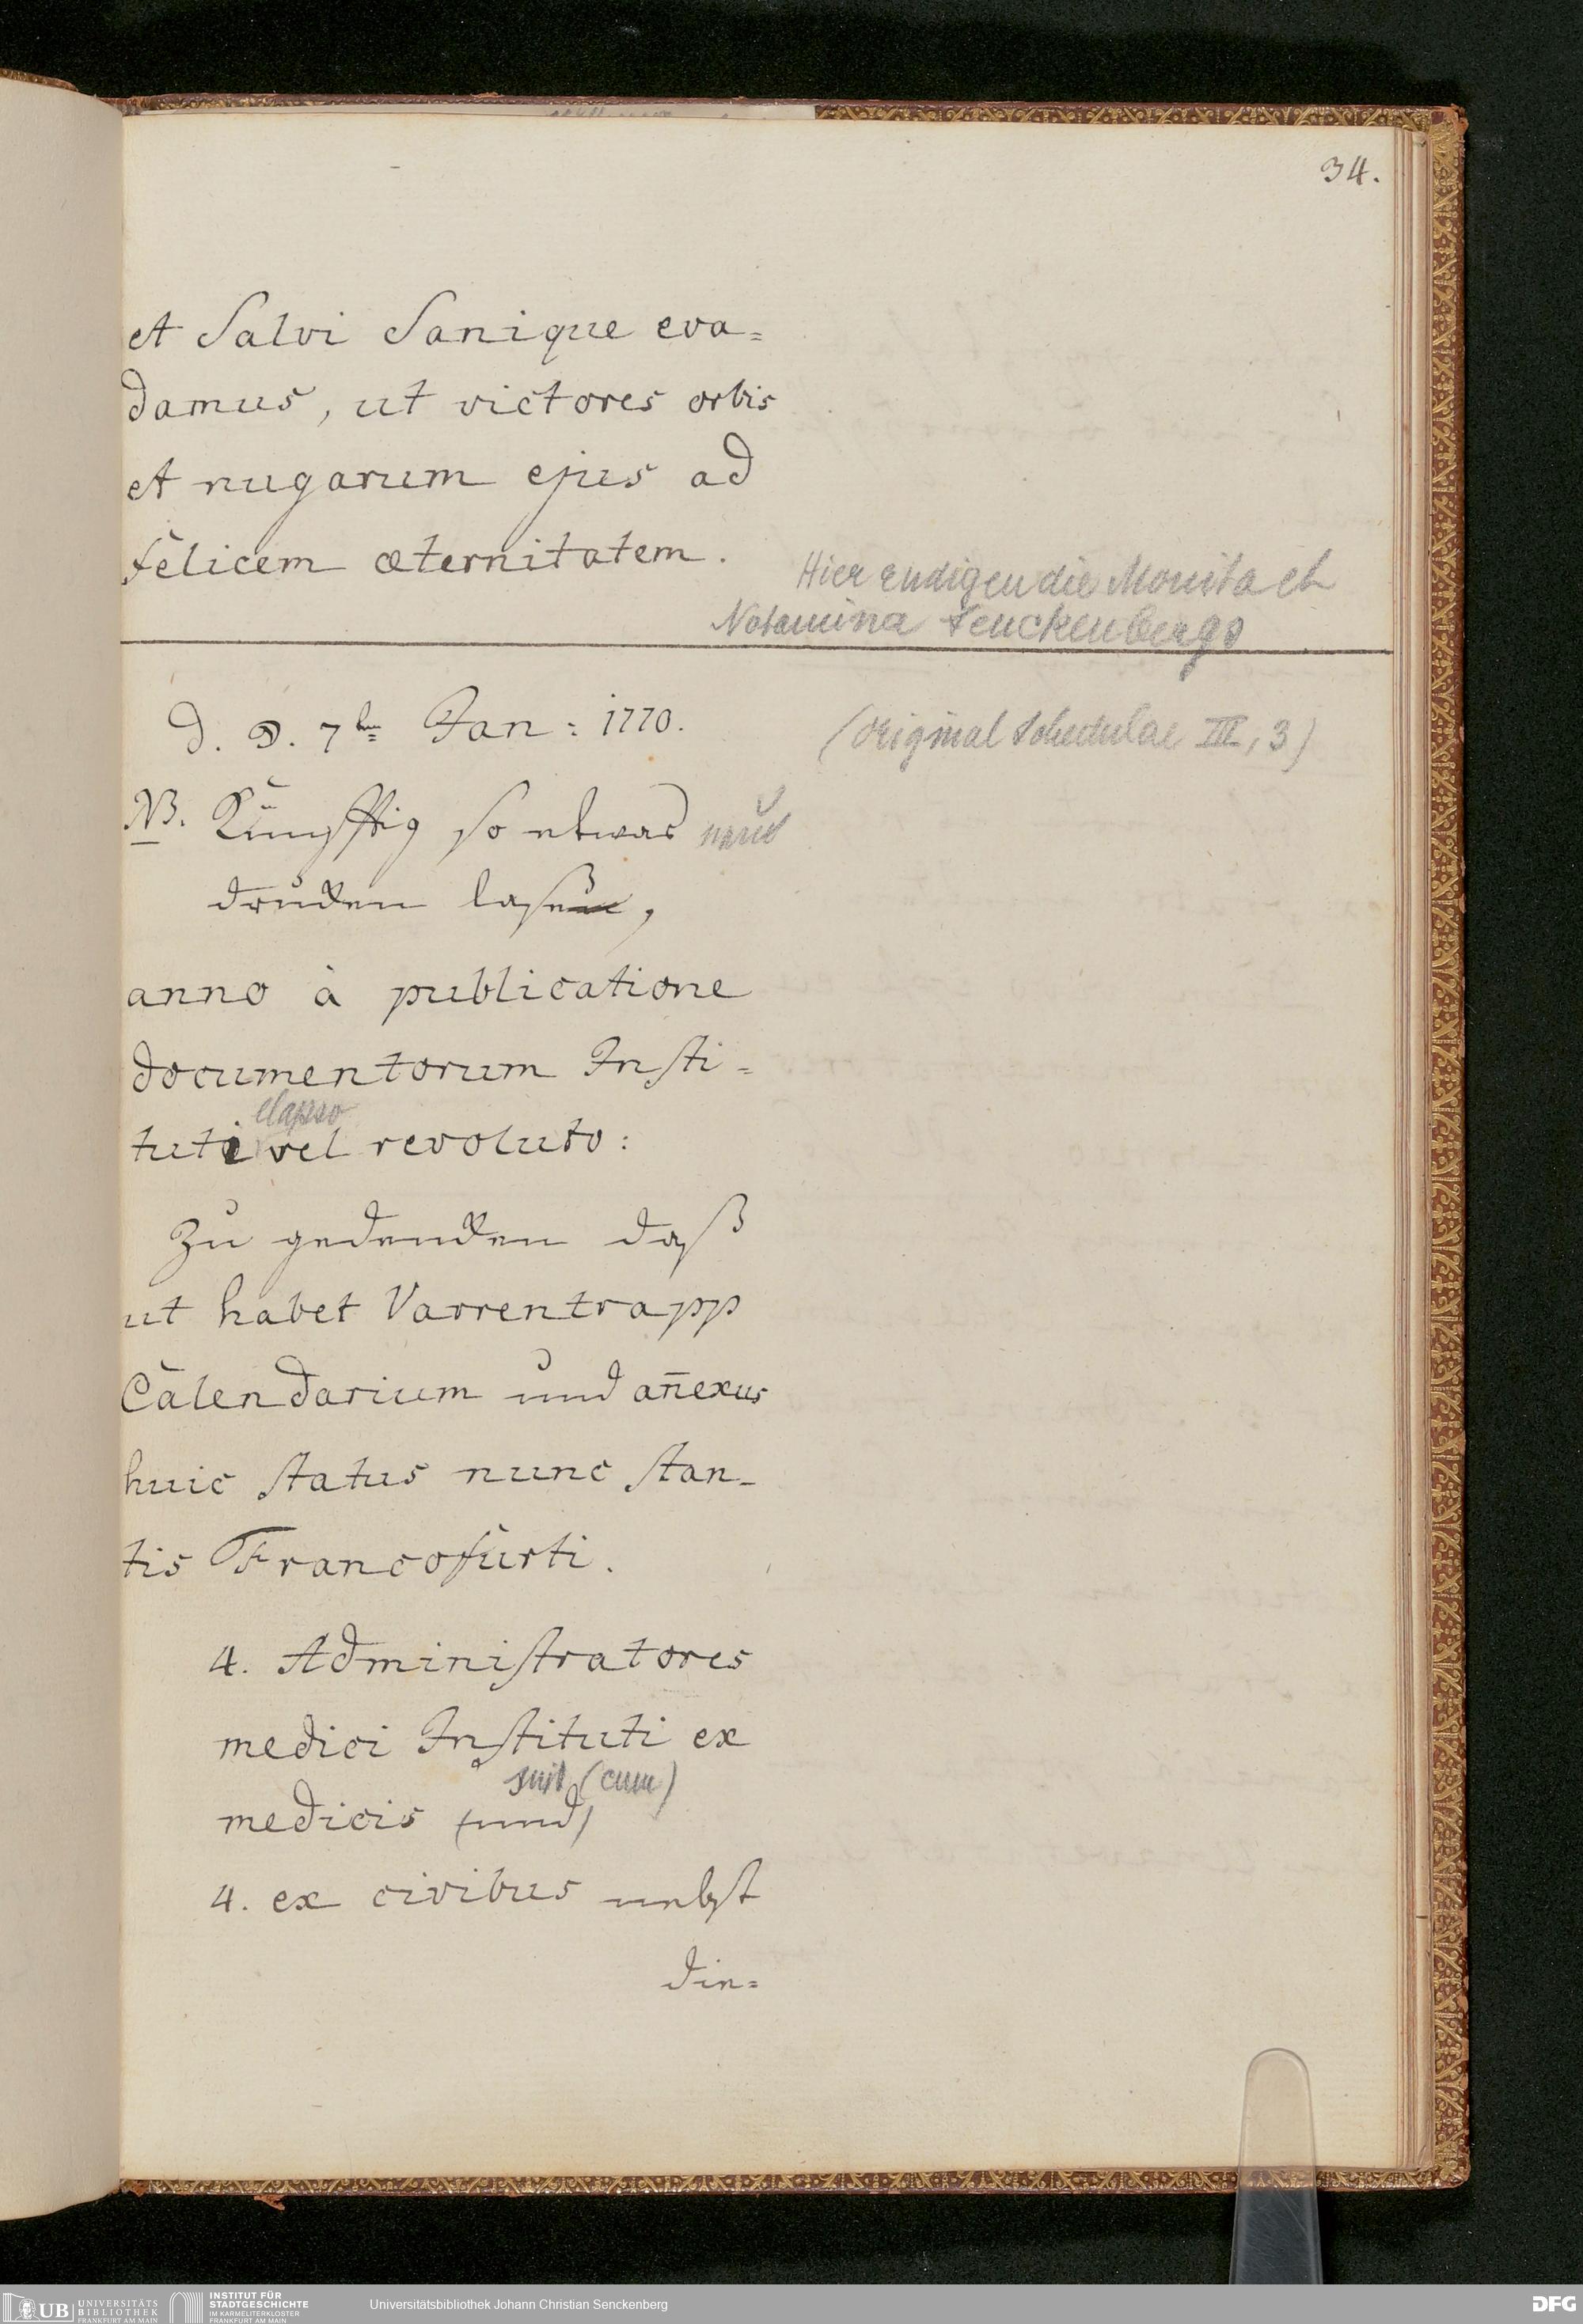 34.
et Salvi Sanique eva=
damus, ut victores orbis
et nugarum ejus ad
felicem æternitatem.
Hier endigen die Monita et
Notamina Senckenbergs
d. 7 Jan: 1770.
(Original Schedulae III, 3)
NB. Künfftig so etwas neu
drucken lasen,
anno à publicatione
documentorum Insti=
elapso
tuti vel revoluto:
Zu gedencken daß
ut habet Varrentrapp
Calendarium und añexus
huic status nunc stan-
tis Francofurti.
4. Administratores
medici Instituti ex
(cum)
medicis (und)
4. ex civibus nebst
din=
UB UNIVERSITÄTS
BIBLIOTHEK
FRANKFURT AM MAIN
INSTITUT FÜR
STADTGESCHICHTE
IM KARMELITERKLOSTER
FRANKFURT AM MAIN
Universitätsbibliothek Johann Christian Senckenberg
DFG